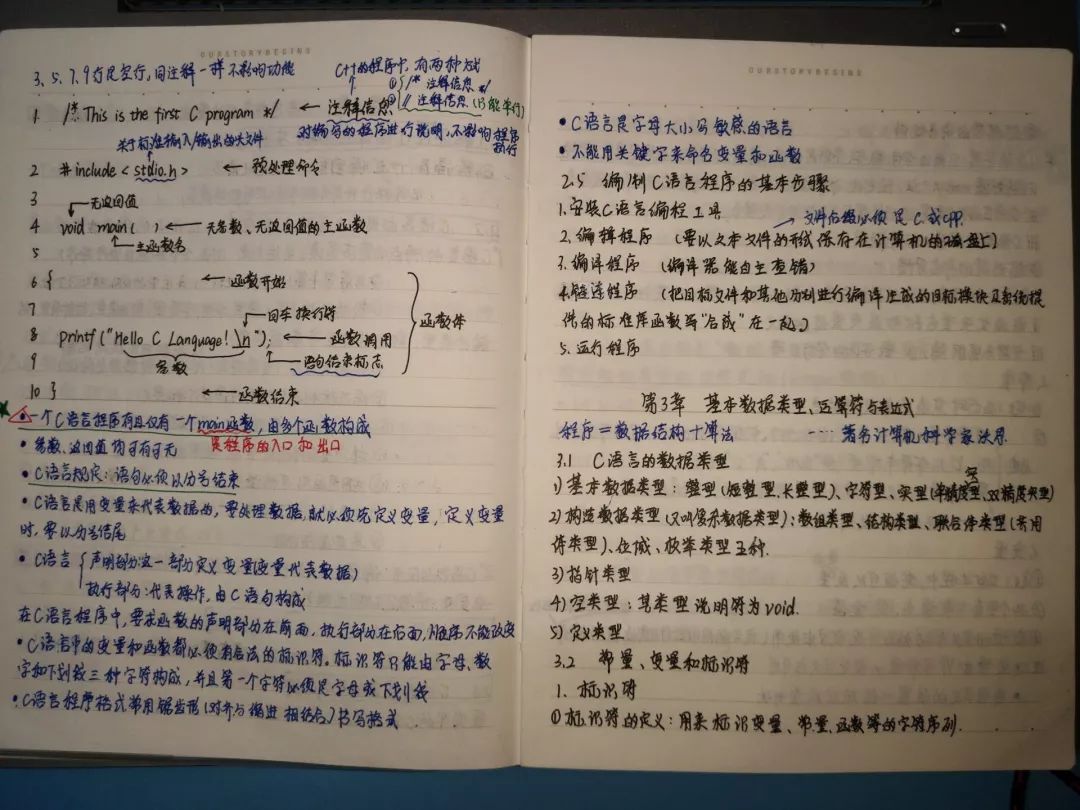 OURSTORYBEGINS
3、5、7、9行是空行,同注释一样不影响功能
C++的程序中,有两种方式
① /* 注释信息 */
② // 注释信息 (只能单行)
1 /* This is the first C program */ ← 注释信息
对编写的程序进行说明,不影响程序执行
关于标准输入/输出的头文件
2 #include <stdio.h> ← 预处理命令
3 无返回值
4 void main( ) ← 无参数、无返回值的主函数
主函数名
5
6 { ← 函数开始
7 回车换行符
8 printf("Hello C Language! \n"); ← 函数调用
函数体
9 参数 语句结束标志
10 } ← 函数结束
一个C语言程序有且仅有一个main函数,由多个函数构成
• 参数、返回值均可有可无 是程序的入口和出口
• C语言规定:语句必须以分号结束
• C语言是用变量来代表数据的,要处理数据,就必须先定义变量,定义变量
时,要以分号结尾
• C语言 { 声明部分:这一部分定义变量(变量代表数据)
执行部分:代表操作,由C语句构成
在C语言程序中,要求函数的声明部分在前面,执行部分在后面,顺序不能改变
• C语言中的变量和函数都必须有合法的标识符。标识符只能由字母、数
字和下划线三种字符构成,并且第一个字符必须是字母或下划线
• C语言程序格式常用锯齿形(对齐与缩进相结合)书写格式
OURSTORYBEGINS
• C语言是字母大小写敏感的语言
• 不能用关键字来命名变量和函数
2.5 编制C语言程序的基本步骤
1.安装C语言编程工具
→ 文件后缀必须是C或CPP.
2.编辑程序 (要以文本文件的形式保存在计算机的磁盘上)
3.编译程序 (编译器能自主查错)
4.链连程序 (把目标文件和其他分别进行编译生成的目标模块及系统提
供的标准库函数等“合成”在一起)
5.运行程序
第3章 基本数据类型、运算符与表达式
程序=数据结构+算法 ---- 著名计算机科学家沃思
3.1 C语言的数据类型
1)基本数据类型:整型(短整型、长整型)、字符型、实型(单精度型、双精度实型)
2)构造数据类型(又叫复杂数据类型):数组类型、结构类型、联合体类型(共用
体类型)、位域、枚举类型五种.
3)指针类型
4)空类型:其类型说明符为void.
5)定义类型
3.2 常量、变量和标识符
1.标识符
①标识符的定义:用来标识变量、常量、函数等的字符序列.